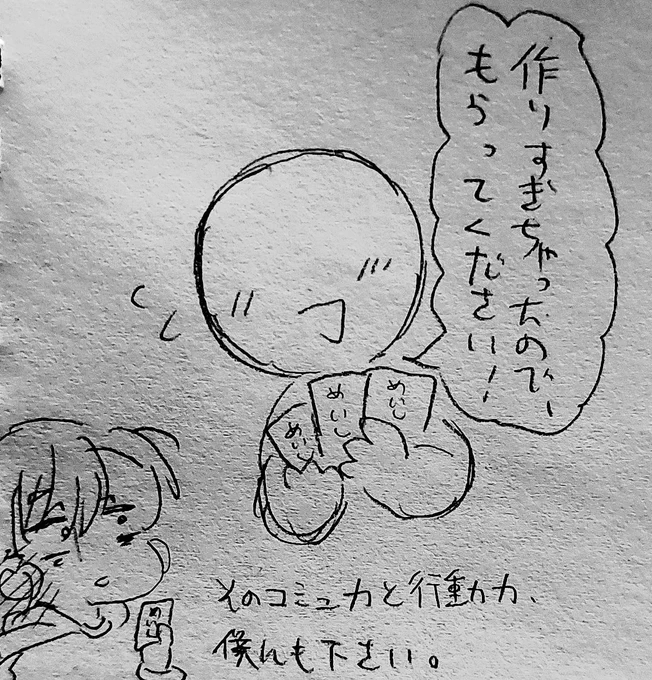 作りすぎちゃったので、
もらってください!
めいし
めいし
めいし
めいし
そのコミュ力と行動力、
僕にも下さい。